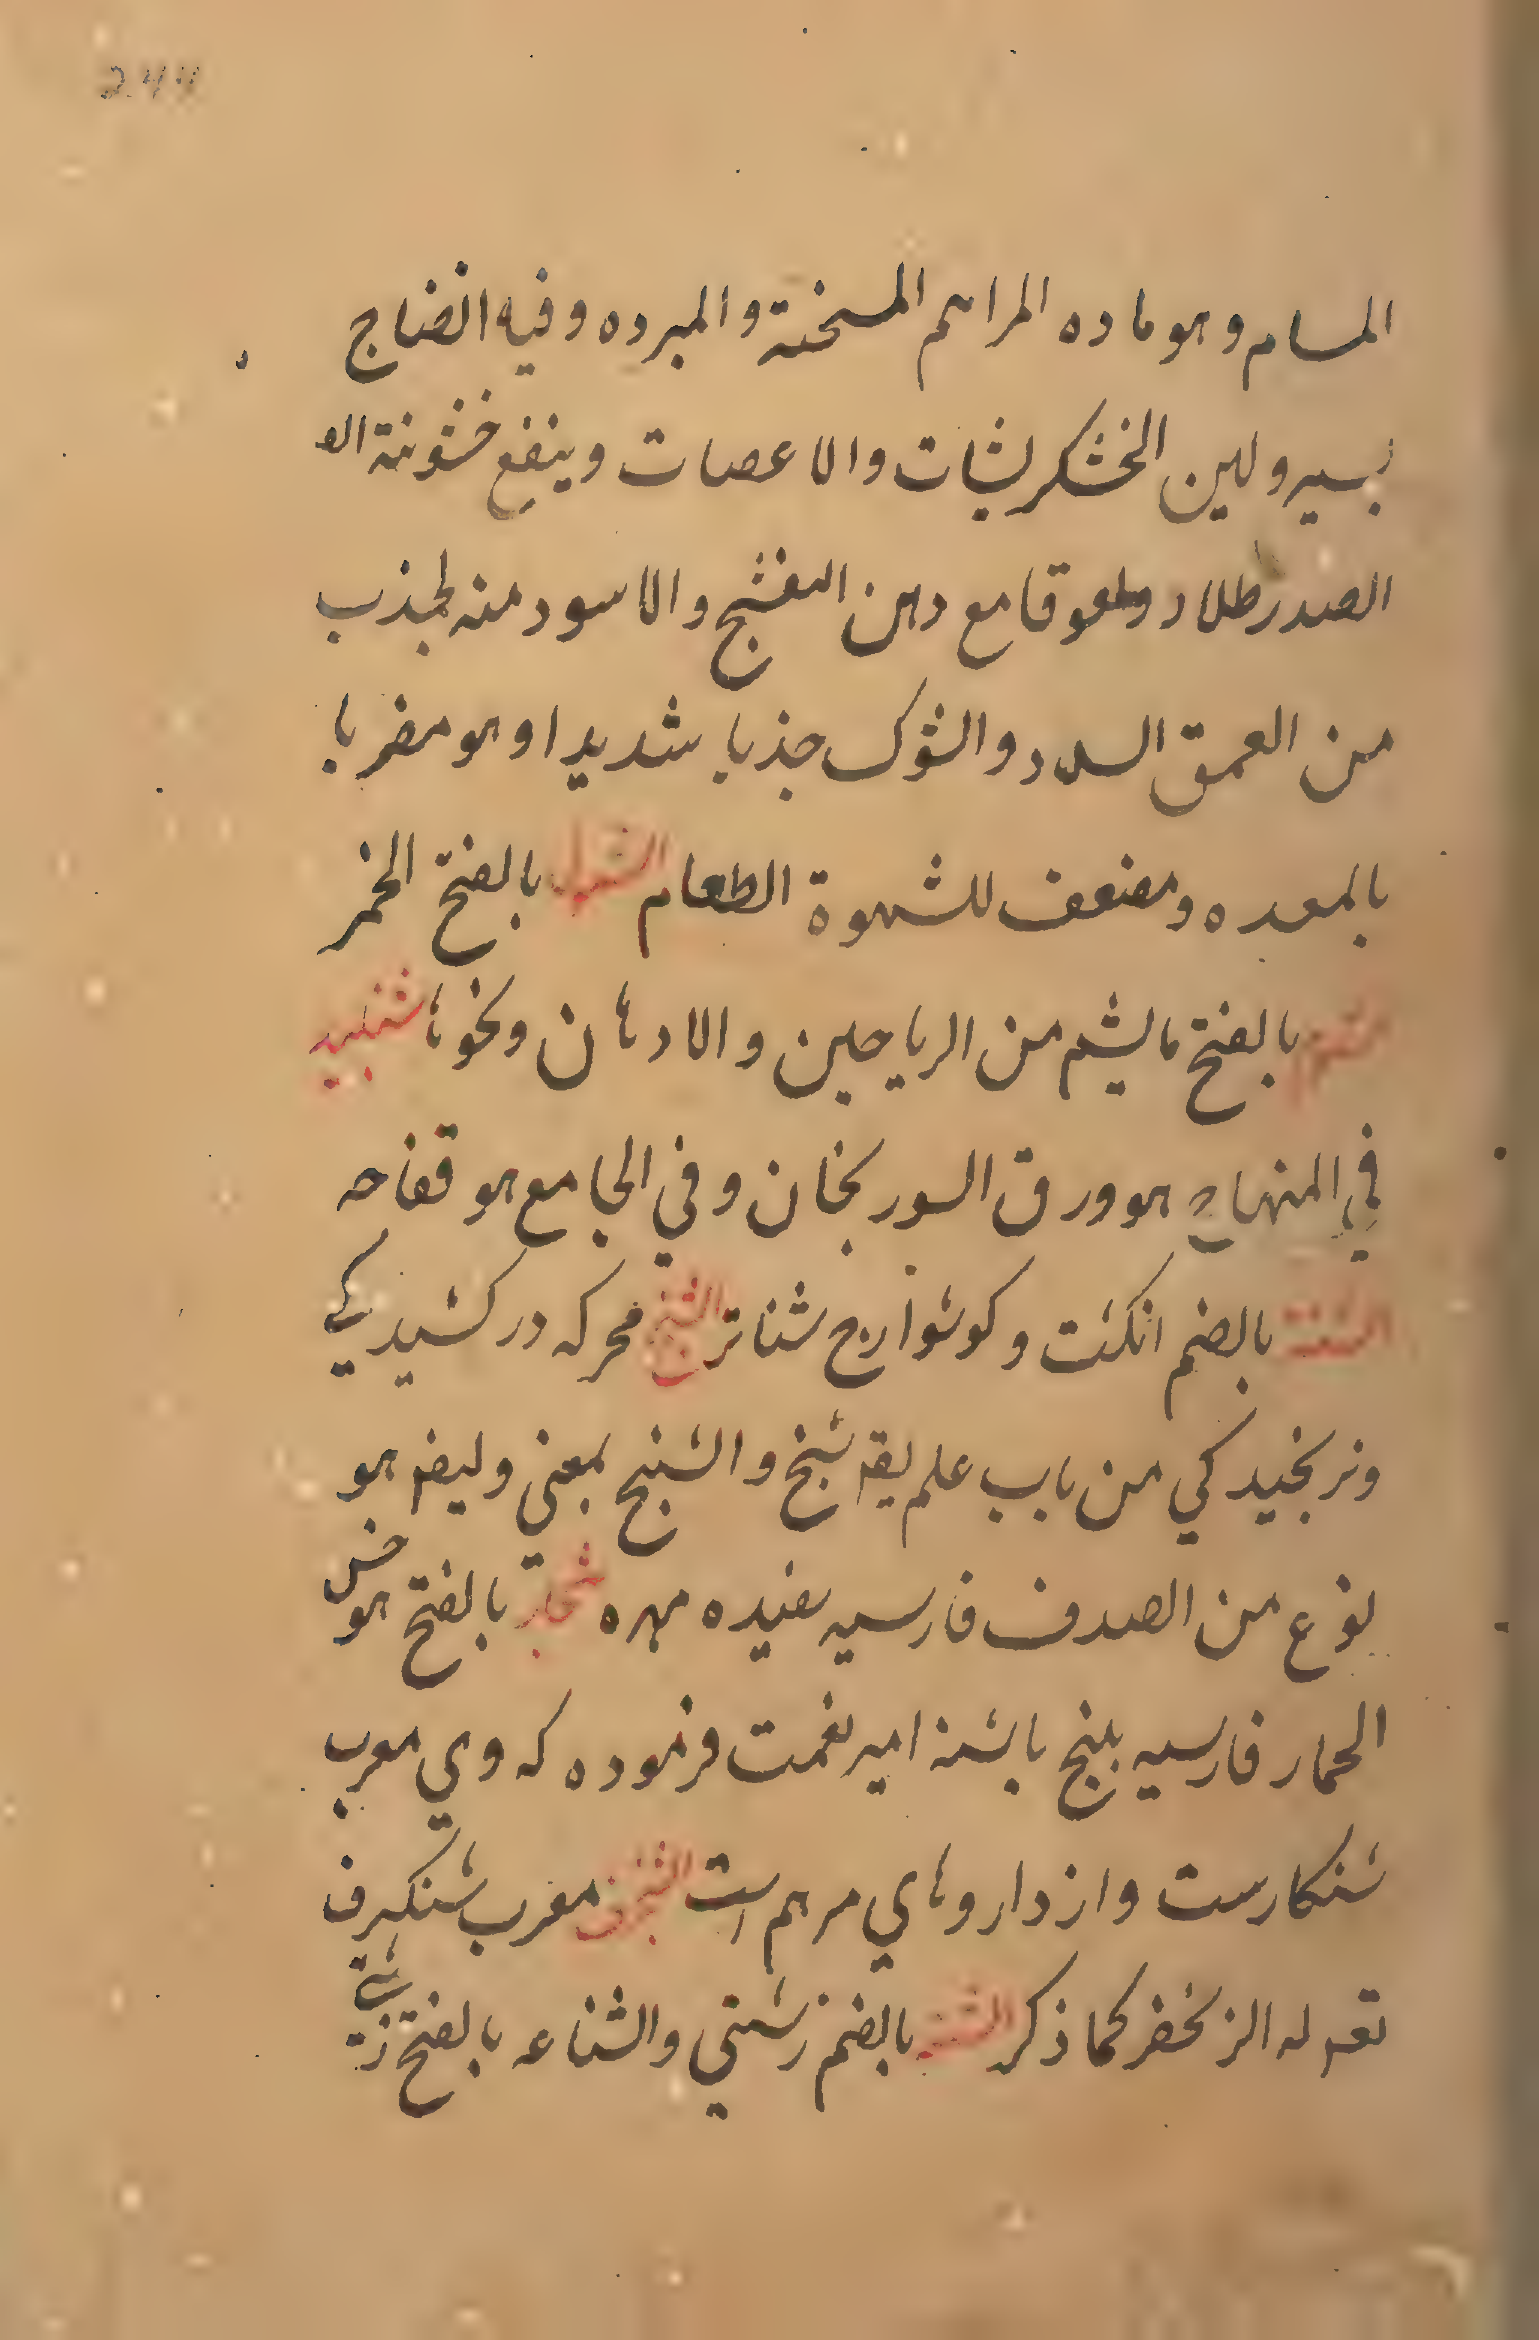 244
المسام وهو ماده المراهم المسخنة والمبرده وفيه انضاج
يسير ولين الخشكريشات والاعصاب وينفع خشونة الص
الصدر طلاء ولعوقا مع دهن البنفشج والاسود منه يجذب
من العمق السلاء والشوك جذبا شديدا وهو مضر با
بالمعده ومضعف للشهوة الطعام الشمول بالفتح الخمر
شموم بالفتح مايشم من الرياحين والادهان ونحوها شنبليد
في المنهاج هو ورق السورنجان وفي الجامع هو فقاحه
بالضم انكشت وكوشوارج شناتر الشنج محركه در كشيدكي
وترنجيدكي من باب علم يقم شنج والشنج بمعني وليضم هو
نوع من الصدف فارسيه سفيده مهره شنجار بالفتح هو خس
الحمار فارسيه بلنج باشنه امير نعمت فرموده كه وي معرب
شنكارست وازداروهاي مرهم است الشنجرف معرب شنكرف
تقوله الزنجفر كما ذكر بالضم زشتي والشناعه بالفتح زشتي